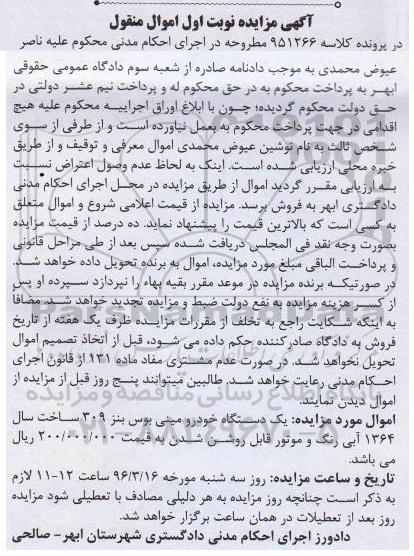 آگهی مزایده نوبت اول اموال منقول
در پرونده کلاسه ۹۵۱۲۶۶ مطروحه در اجرای احکام مدنی محکوم علیه ناصر
عیوض محمدی به موجب دادنامه صادره از شعبه سوم دادگاه عمومی حقوقی
ابهر به پرداخت محکوم به در حق محکوم له و پرداخت نیم عشر دولتی در
حق دولت محکوم گردیده؛ چون با ابلاغ اوراق اجراییه محکوم علیه هیچ
اقدامی در جهت پرداخت محکوم به بعمل نیاورده است و از طرفی از سوی
شخص ثالث به نام نوشین عیوض محمدی اموال معرفی و توقیف و از طریق
خبره محلی ارزیابی شده است. اینک به لحاظ عدم وصول اعتراض نسبت
به ارزیابی مقرر گردید اموال از طریق مزایده در محل اجرای احکام مدنی
دادگستری ابهر به فروش برسد. مزایده از قیمت اعلامی شروع و اموال متعلق
به کسی است که بالاترین قیمت را پیشنهاد نماید. ده درصد از قیمت مزایده
بصورت وجه نقد فی المجلس دریافت شده سپس بعد از طی مراحل قانونی
و پرداخت الباقی مبلغ مورد مزایده، اموال به برنده تحویل داده خواهد شد.
در صورتیکه برنده مزایده در موعد مقرر بقیه بهاء را نپردازد سپرده او پس
از کسر هزینه مزایده به نفع دولت ضبط و مزایده تجدید خواهد شد. مضافا
به اینکه شکایت راجع به تخلف از مقررات مزایده ظرف یک هفته از تاریخ
فروش به دادگاه صادرکننده حکم داده می شود، قبل از آتخاذ تصمیم اموال
تحویل نخواهد شد. در صورت عدم مشتری مفاد ماده ۱۳۱ از قانون اجرای
احکام مدنی رعایت خواهد شد. طالبین میتوانند پنج روز قبل از مزایده از
اموال دیدن نمایند.
اموال مورد مزایده: یک دستگاه خودرو مینی بوس بنز ۳۰۹ ساخت سال
۱۳۶۴ آبی رنگ و موتور قابل روشن شدن به قیمت ۲۰۰/۰۰۰/۰۰۰ ریال
می باشد.
تاریخ و ساعت مزایده: روز سه شنبه مورخه ۹۶/۳/۱۶ ساعت ۱۲-۱۱ لازم
به ذکر است چنانچه روز مزایده به هر دلیلی مصادف با تعطیلی شود مزایده
روز بعد از تعطیلات در همان ساعت برگزار خواهد شد.
دادورز اجرای احکام مدنی دادگستری شهرستان ابهر- صالحی